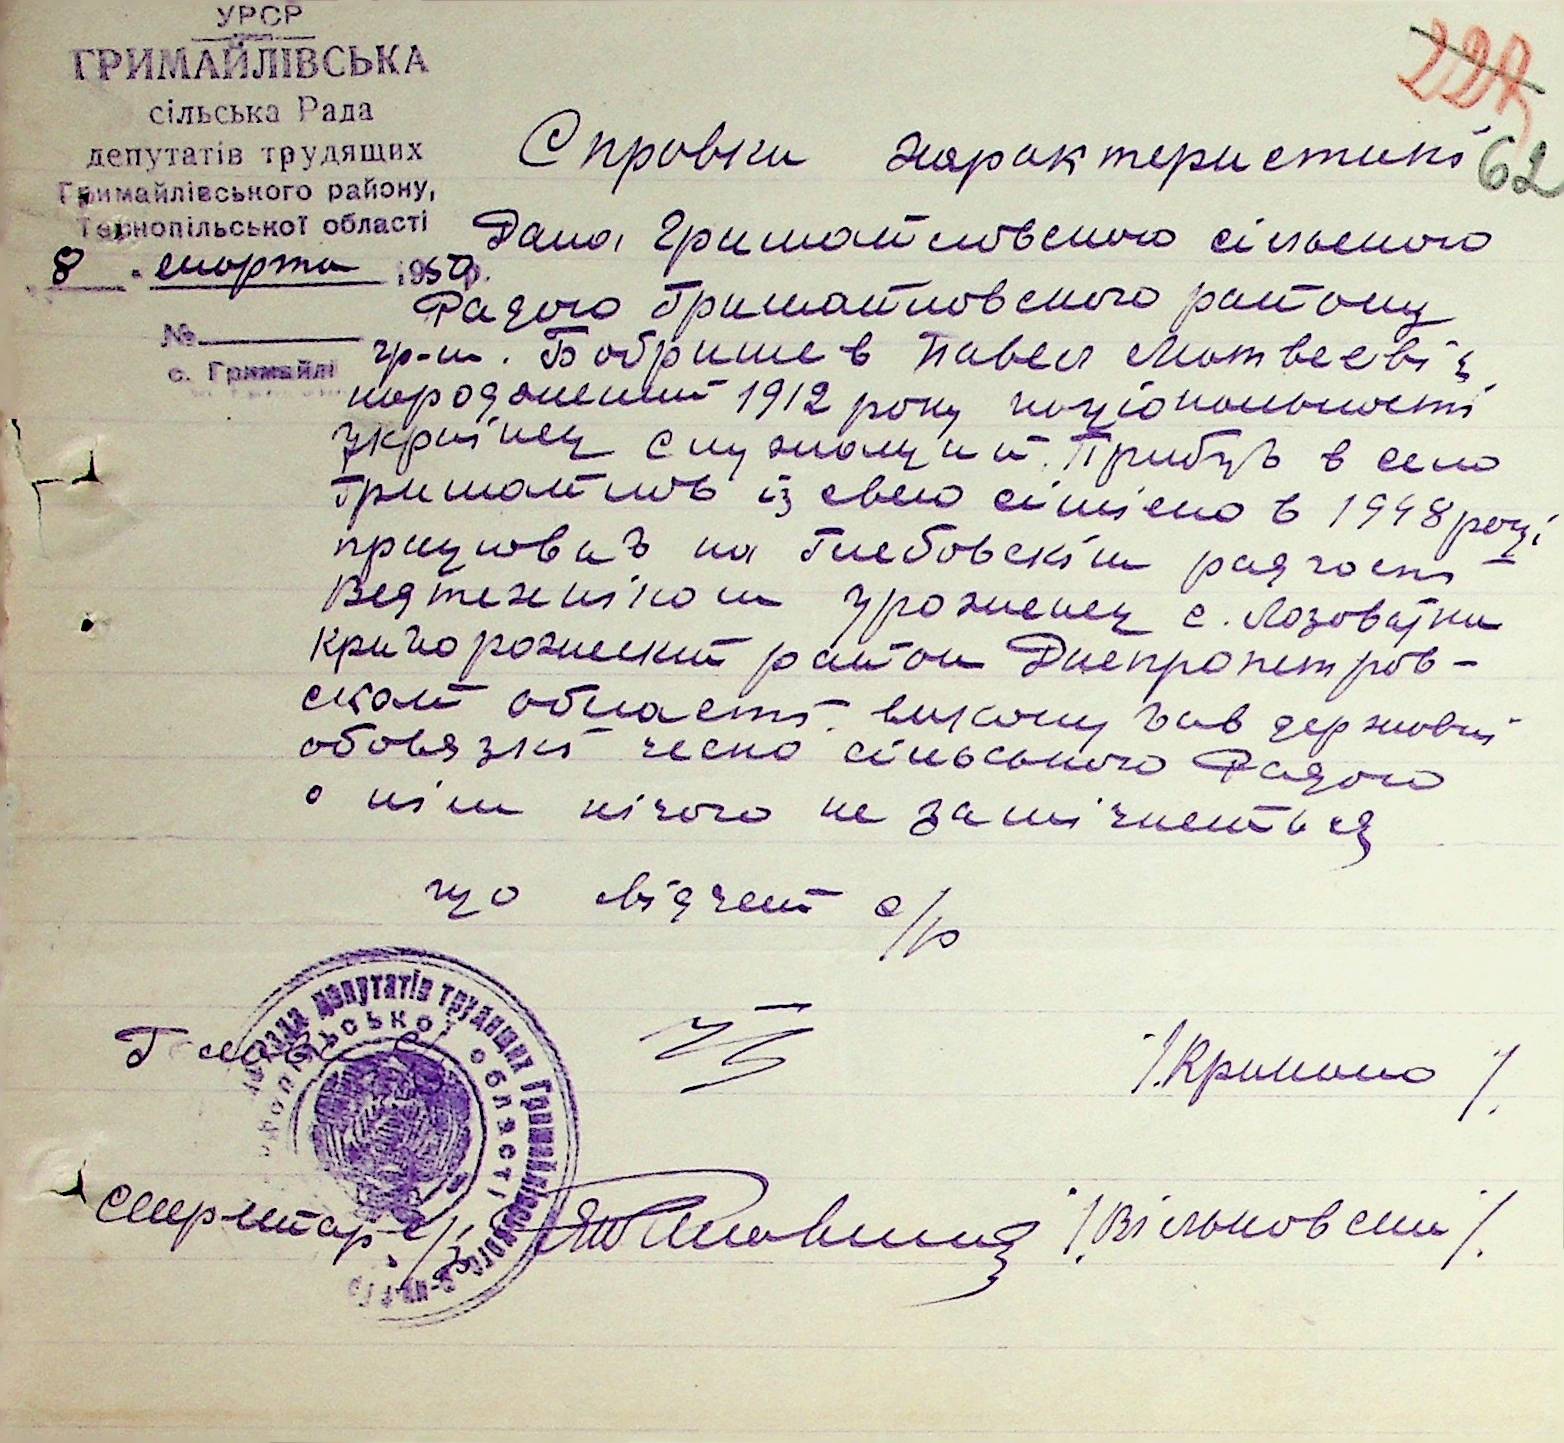 УРСР
ГРИМАЙЛІВСЬКА
сільська Рада
депутатів трудящих
Гримайлівського району,
Тернопільської області
8 . марта 195 р.
№
с. Гримайлі
62
Справка характеристикі
Дана Гримайловского сільского
Радою Гримайловского району
гр-н. Бобришев Павел Матвеевіч
народжений 1912 року національності
українец служащий. Прибув в село
Гримайлов із свею сімією в 1948 році
працював на Глебовскім радгоспі
Ведтехніком уроженец с. Лозоватки
Криворожский район Днепропетров-
ской області. виконував державні
обовязкі чесно сільського Радою
о нім нічого не замічается
що свідчет с/р
Голова с/
/.Кримко/.
Секретар с/р
/.Вільковски/.
Рада депутатів трудящих Гримайлівського р-ну
Тернопільської області